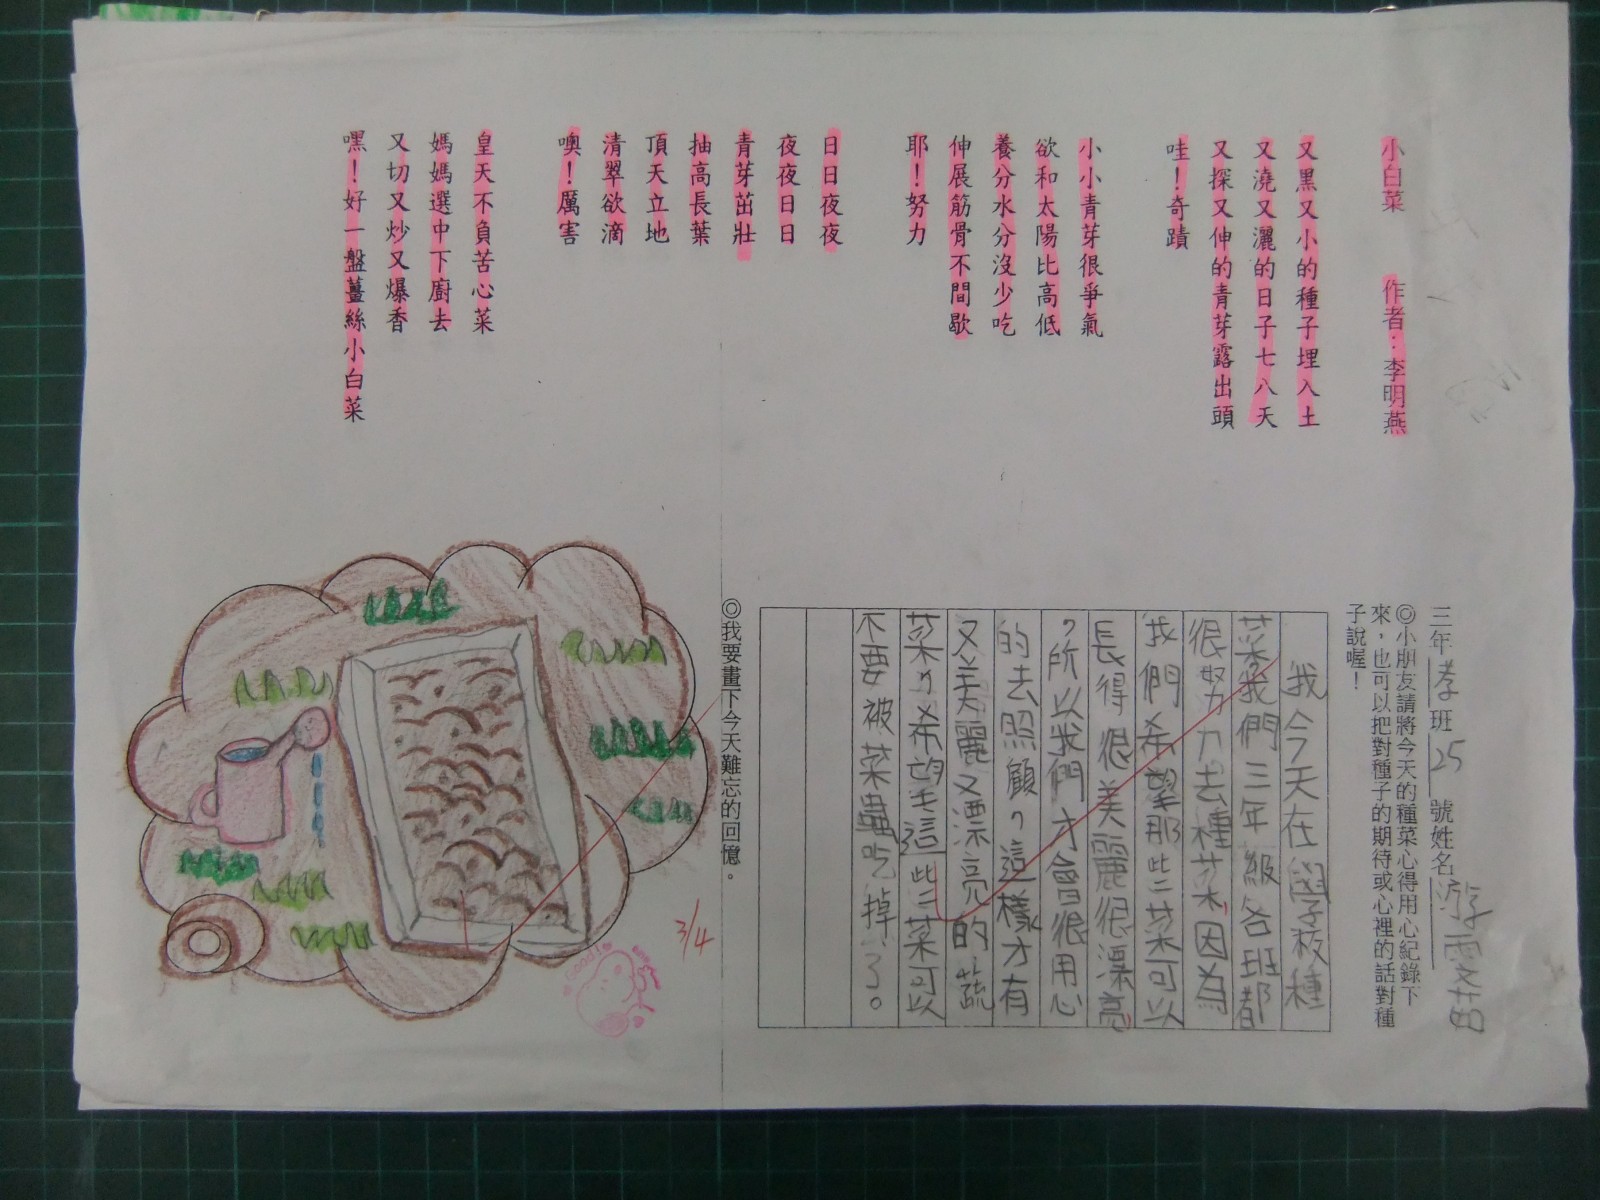 小白菜　作者：李明燕
又黑又小的種子埋入土
又澆又灑的日子七八天
又探又伸的青芽露出頭
哇！奇蹟
小小青芽很爭氣
欲和太陽比高低
養分水分沒少吃
伸展筋骨不間歇
耶！努力
日日夜夜
夜夜日日
青芽茁壯
抽高長葉
頂天立地
清翠欲滴
噢！厲害
皇天不負苦心菜
媽媽選中下廚去
又切又炒又爆香
嘿！好一盤薑絲小白菜
三年孝班25號姓名游雯茹
◎小朋友請將今天的種菜心得用心紀錄下
來，也可以把對種子的期待或心裡的話對種
子說喔！
我今天在學校種
菜，我們三年級各班都
很努力去種菜，因為
我們希望那些菜可以
長得很美麗很漂亮
，所以我們才會很用心
的去照顧，這樣才有
又美麗又漂亮的蔬
菜，希望這些菜可以
不要被菜蟲吃掉了。
◎我要畫下今天難忘的回憶。
3/4
Good